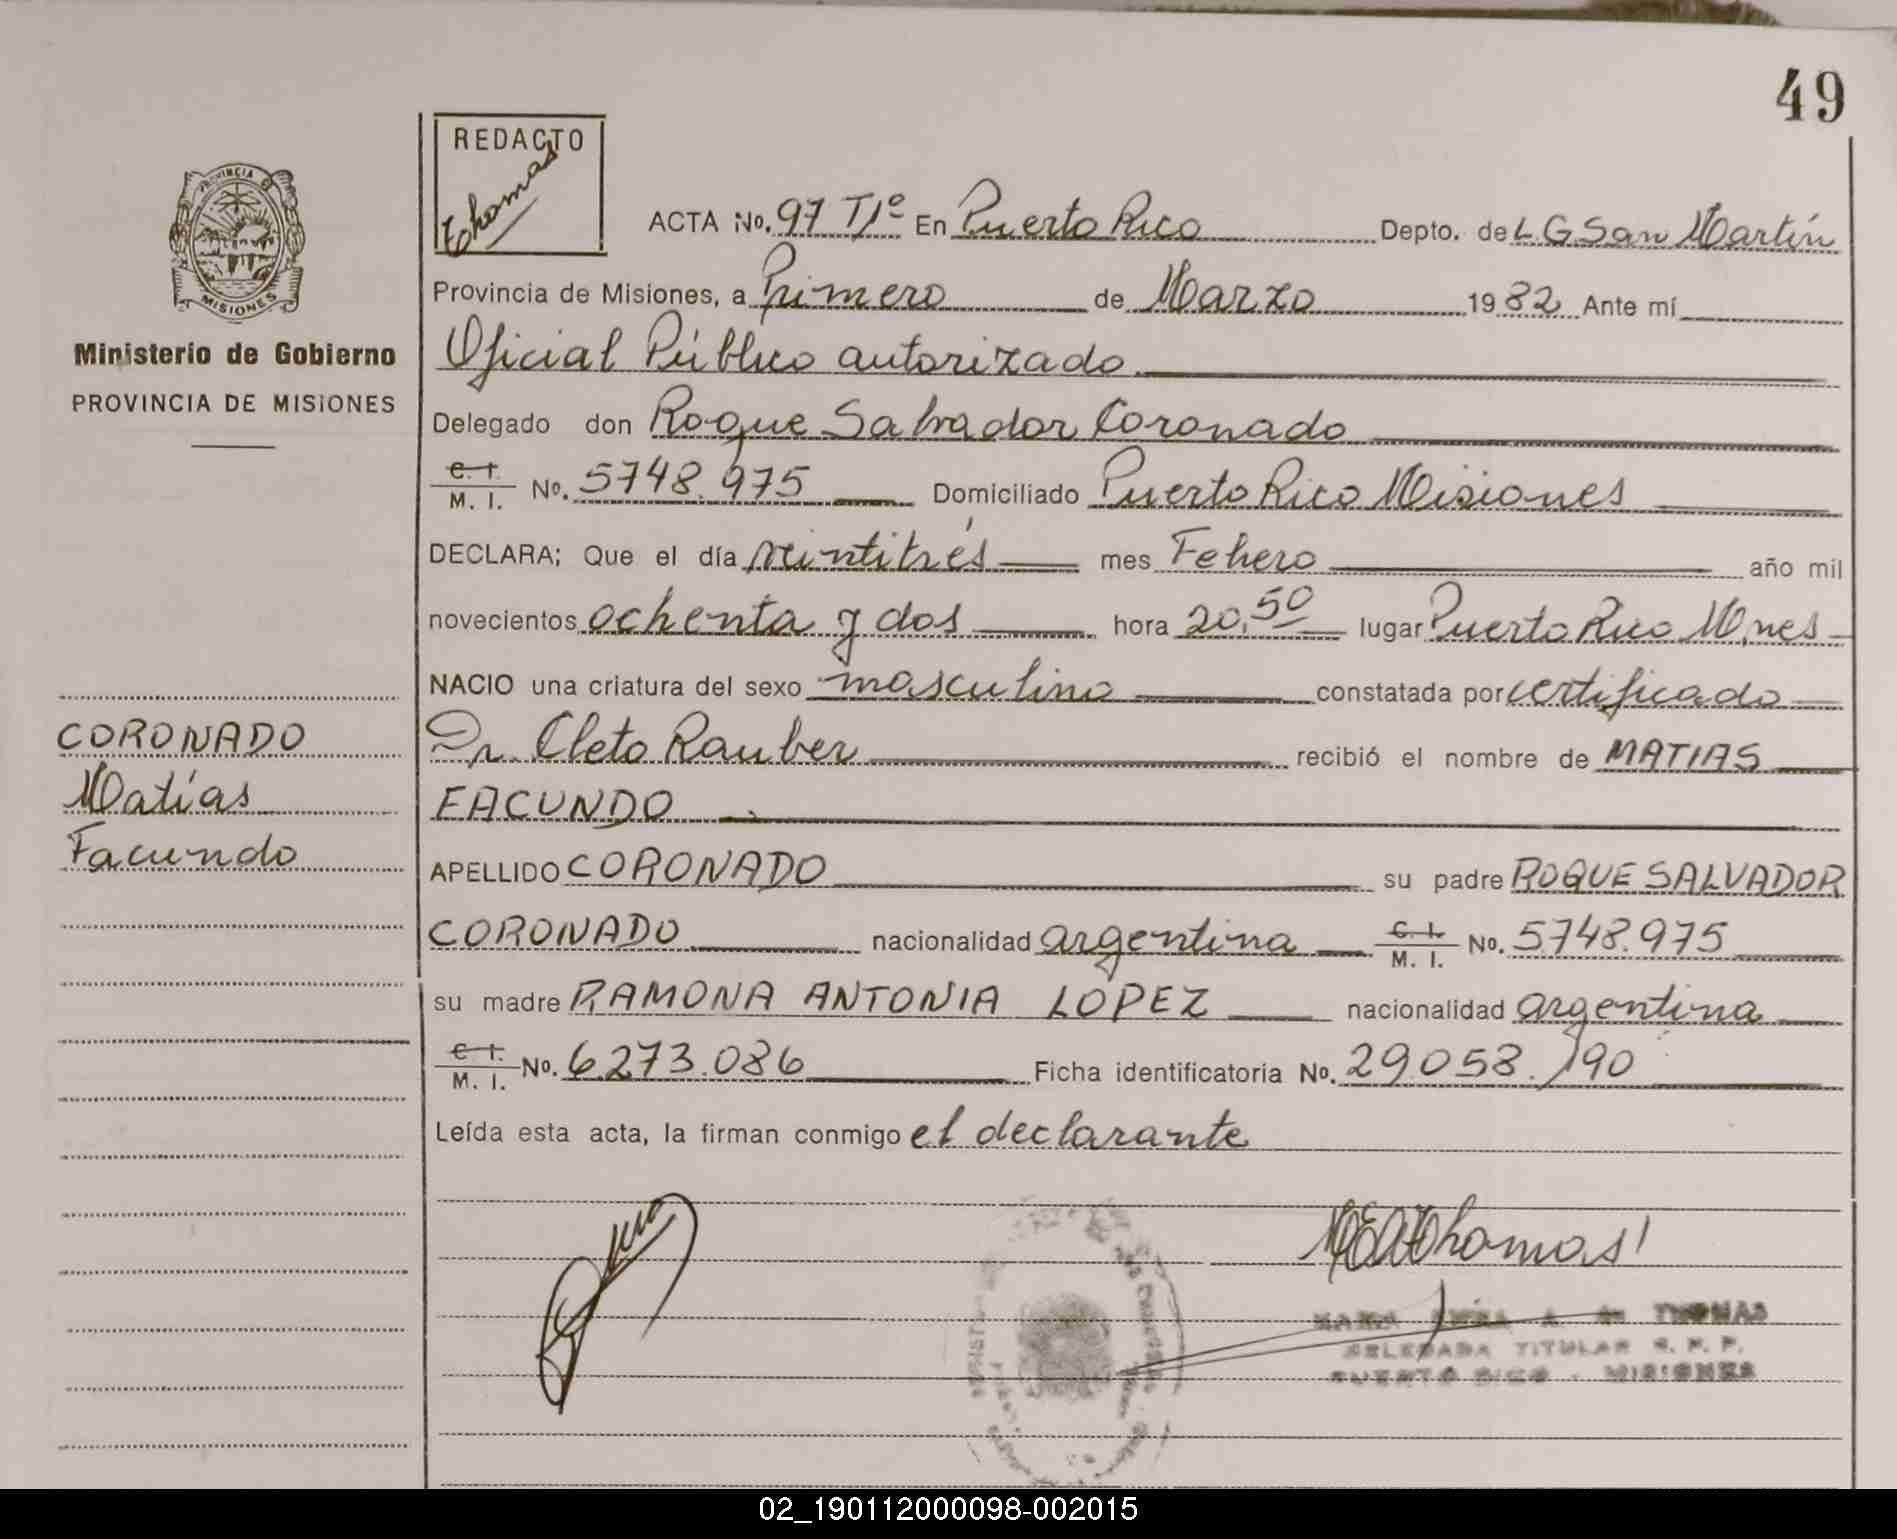 49
REDACTO
Thomas
PROVINCIA D
MISIONES
Ministerio de Gobierno
PROVINCIA DE MISIONES
ACTA No. 97 Tº En Puerto Rico Depto. de L G San Martín
Provincia de Misiones, a Primero de Marzo 1982 Ante mí
Oficial Público autorizado
Delegado don Roque Salvador Coronado
C. I. / M. I. No. 5748.975 Domiciliado Puerto Rico Misiones
DECLARA; Que el día veintitrés mes Febrero año mil
novecientos ochenta y dos hora 20,50 lugar Puerto Rico Mnes
NACIO una criatura del sexo masculino constatada por certificado
Dr. Cleto Rauber recibió el nombre de MATIAS
FACUNDO
APELLIDO CORONADO su padre ROQUE SALVADOR
CORONADO nacionalidad argentina C. I. / M. I. No. 5748.975
su madre RAMONA ANTONIA LOPEZ nacionalidad argentina
C. I. / M. I. No. 6.273.086 Ficha identificatoria No. 29.058.190
Leída esta acta, la firman conmigo el declarante
CORONADO
Matías
Facundo
Thomas
MARIA A. de THOMAS
DELEGADA TITULAR R. P. P.
PUERTO RICO - MISIONES
02_190112000098-002015